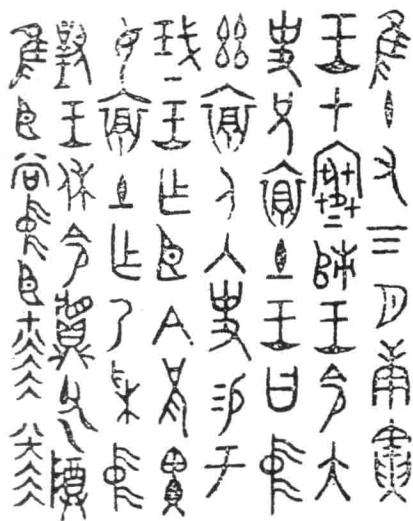 隹十又三月庚寅
王才寒𠂤王令大
史兄褱土王曰中
茲褱人入史易于
珷王乍臣今兄畀
女褱土乍乃采中
對王休令父乙
隹臣尚中臣七八六六六六八七六六六六